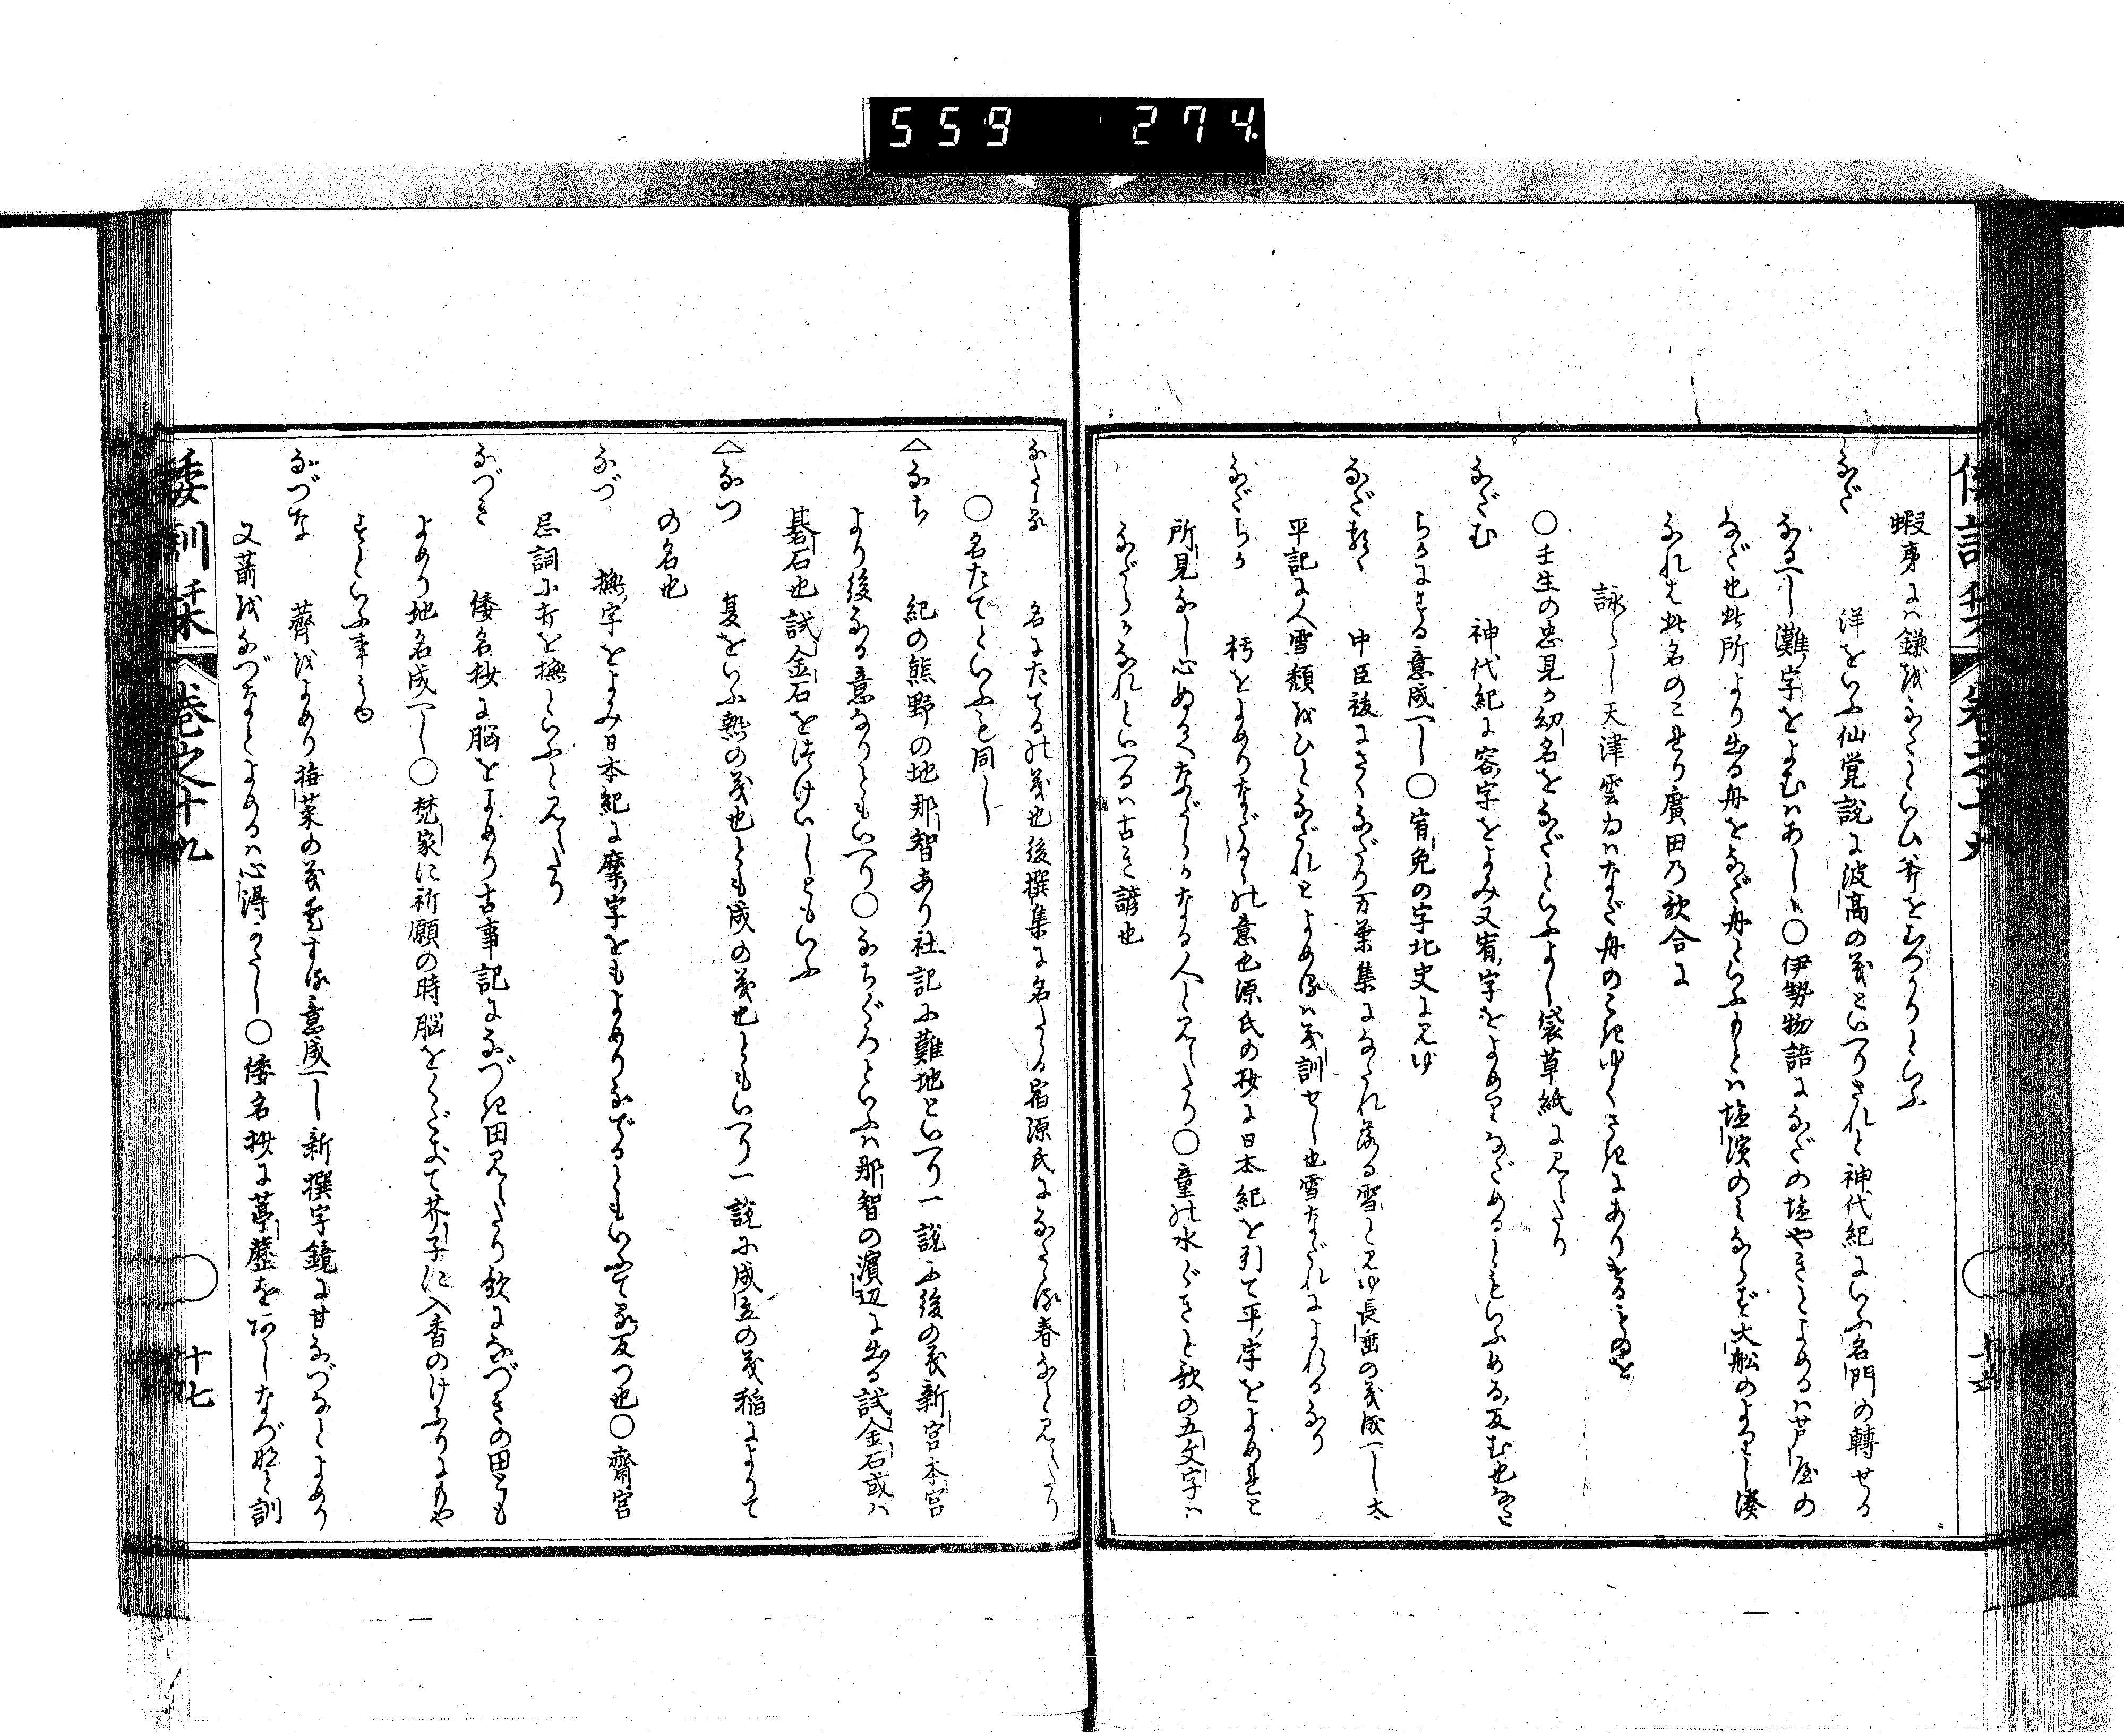 559 274
蝦夷にハ鎌をなたといひ斧をむつりといふ
なだ 洋をいふ仙覚説に波高の義といへりされと神代紀にいふ名門の轉せる
なるへし灘字をよむハあし〇伊勢物語になだの塩やきとよめるハ芦屋の
なだ也此所より出る舟をなだ舟といふもとハ塩濱のみならず大舩のよるへし湊
なれは此名のこせり廣田乃歌合に
詠らし天津雲ゐハなだ舟のこきゆくさきにありけるものを
〇壬生の忠見か幼名をなだといふよし袋草紙に見えたり
なだむ 神代紀に容字をよみ又宥字をよめりなだめるともいふめる反む也なた
らかにする意成へし〇宥免の字北史に見ゆ
なだれ 中臣祓にさくなだり万葉集になたれ落る雪と見ゆ長垂の義成へし太
平記に人雪頽をひとなだれとよめるハ義訓せし也雪なだれによれるなり
なだらか 描をよめりなだるゝの意也源氏の抄に日本紀を引て平字をよめれと
所見なし心ぬるくなだらかなる人と見えたり〇童の水くきと歌の五文字ハ
なだらかなれといへるハ古き諺也
倭訓栞 巻之十九 十六
なたる 名にたてるの義也後撰集に名たる宿源氏になたる春なと見えたり
〇名たてといふも同し
△なち 紀の熊野の地那智あり社記に難地といへり一説に後の義新宮本宮
より後なる意なりともいへり〇なちぐろといふハ那智の濱辺に出る試金石或ハ
碁石也試金石を つけいしともいふ
△なつ 夏をいふ熱の義也とも成の義也ともいへり一説に成立の義稲によりて
の名也
なづ 撫字をよみ日本紀に摩字をもよめりなでるともいふて る反つ也〇齋宮
忌詞に打を撫といふと見えたり
なづき 倭名抄に脳をよめり古事記になづき田見えたり歌になづきの田とも
よめり地名成へし〇梵家に祈願の時脳をくだきて芥子に入香のけふりにもや
すといふ事あり
なづな 薺をよめり撫菜の義愛する意成へし新撰字鏡に甘なづなとよめり
又葥をなづなとよめるハ心得かたし〇倭名抄に葶藶をはましなづなと訓
倭訓栞 巻之十九 十七